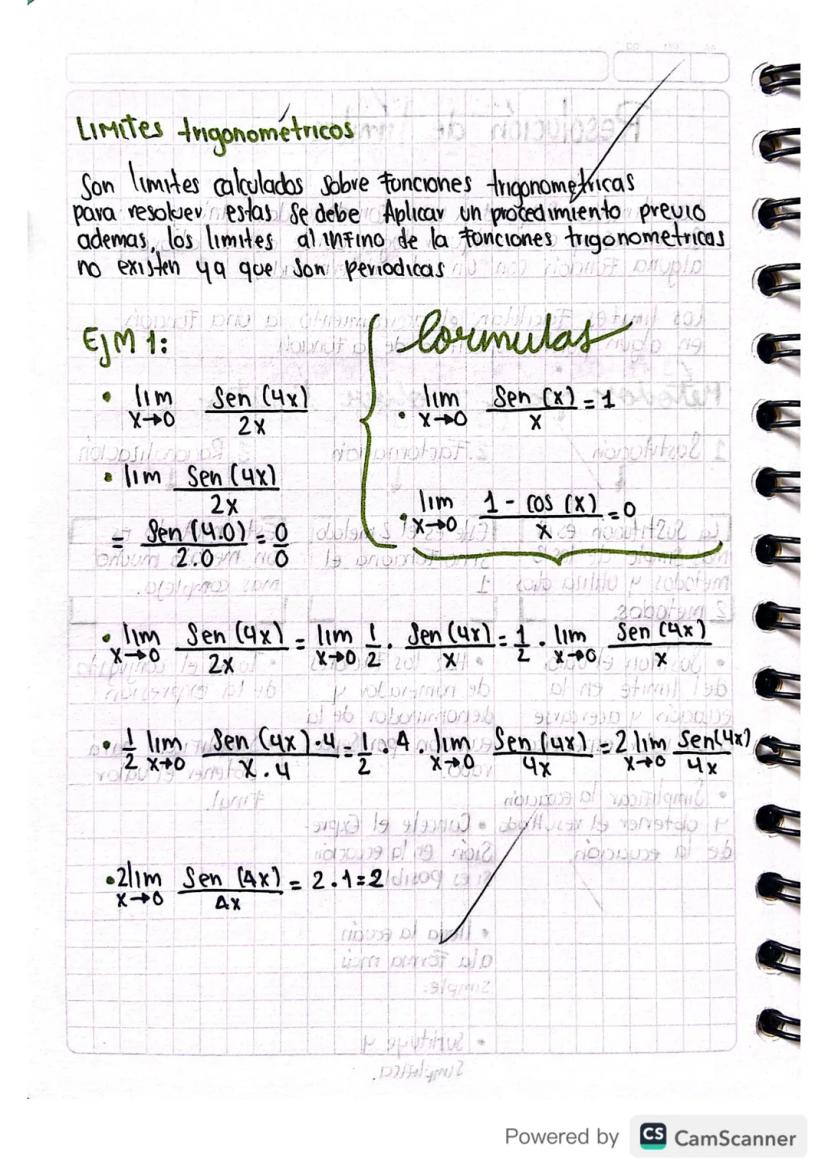 Limites trigonométricos
Son limites calculados sobre funciones trigonometricas
para resolver estas se debe Aplicar un procedimiento previo
ademas, los limites al infino de la funciones trigonometricas
no existen ya que son periodicas
EJM 1:
• lim x→0 Sen (4x) / 2x
• lim Sen (4x) / 2x
= Sen (4.0) / 2.0 = 0/0
formulas
• lim x→0 Sen (x) / x = 1
• lim x→0 1 - cos (x) / x = 0
• lim x→0 Sen (4x) / 2x = lim x→0 1/2 . Sen (4x) / x = 1/2 . lim x→0 Sen (4x) / x
• 1/2 lim x→0 Sen (4x) . 4 / x . 4 = 1/2 . 4 lim x→0 Sen (4x) / 4x = 2 lim x→0 Sen(4x) / 4x
• 2lim x→0 Sen (4x) / 4x = 2 . 1 = 2
Powered by CS CamScanner